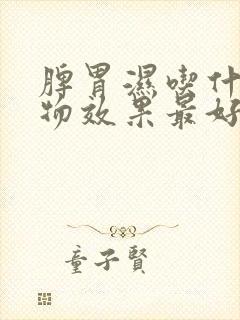 脾胃濕喫什
物效果最好
童子賢